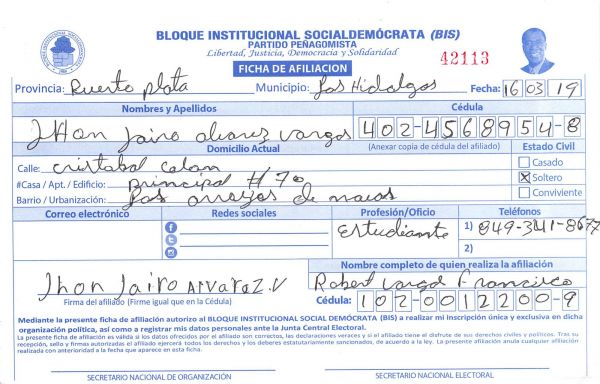 BLOQUE INSTITUCIONAL SOCIALDEMÓCRATA (BIS)
PARTIDO PEÑAGOMISTA
Libertad, Justicia, Democracia y Solidaridad
42113
FICHA DE AFILIACION
Provincia: Puerto plata Municipio: Los Hidalgos Fecha: 16 03 19
Nombres y Apellidos Cédula
JHon Jairo alvarez vargas 402-4568954-8
Domicilio Actual (Anexar copia de cédula del afiliado) Estado Civil
Calle: cristabal colon Casado
#Casa / Apt. / Edificio: principal # 70 X Soltero
Barrio / Urbanización: Los arroyos de Conviviente
Correo electrónico Redes sociales Profesión/Oficio Teléfonos
Estudiante 1) 849-341-8677
2)
Jhon Jairo Alvarez.V Robert vargas Francisco
Nombre completo de quien realiza la afiliación
Firma del afiliado (Firme igual que en la Cédula) Cédula: 102-0012200-9
Mediante la presente ficha de afiliación autorizo al BLOQUE INSTITUCIONAL SOCIAL DEMÓCRATA (BIS) a realizar mi inscripción única y exclusiva en dicha
organización política, así como a registrar mis datos personales ante la Junta Central Electoral.
La presente ficha de afiliación es válida si los datos ofrecidos por el afiliado son correctos, las declaraciones veraces y si el afiliado tiene el disfrute de sus derechos civiles y políticos. Tras su
recepción, sello y firmas autorizadas el afiliado ejercerá todos los derechos y los deberes estatutariamente sancionados, de acuerdo a la ley. La presente afiliación anula cualquier afiliación
realizada con anterioridad a la fecha que aparece en esta ficha.
SECRETARIO NACIONAL DE ORGANIZACIÓN SECRETARIO NACIONAL ELECTORAL